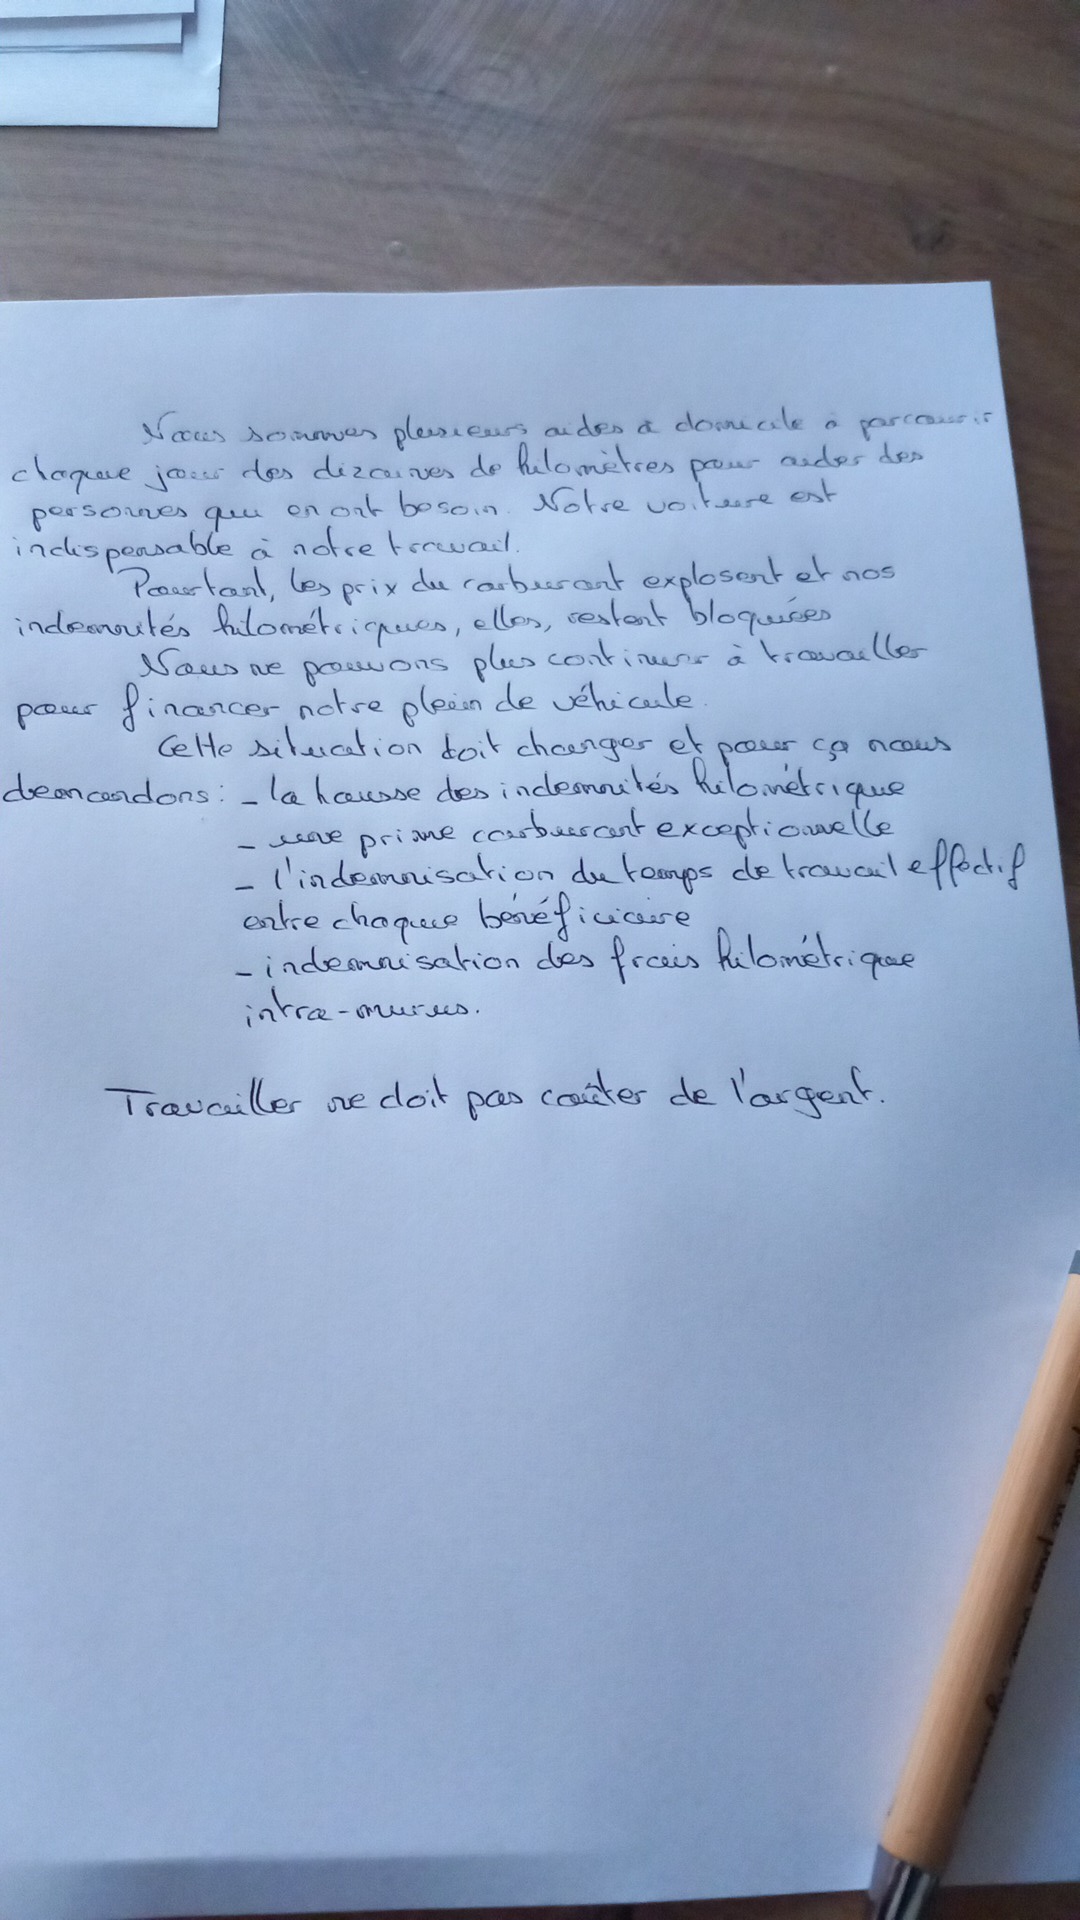 Nous sommes plusieurs aides à domicile à parcourir
chaque jour des dizaines de kilomètres pour aider des
personnes qui en ont besoin. Notre voiture est
indispensable à notre travail.
Pourtant, les prix du carburant explosent et nos
indemnités kilométriques, elles, restent bloquées
Nous ne pouvons plus continuer à travailler
pour financer notre plein de véhicule.
Cette situation doit changer et pour ça nous
demandons : - la hausse des indemnités kilométrique
- une prime carburant exceptionnelle
- l'indemnisation du temps de travail effectif
entre chaque bénéficiaire
- indemnisation des frais kilométrique
intra-muros.
Travailler ne doit pas coûter de l'argent.